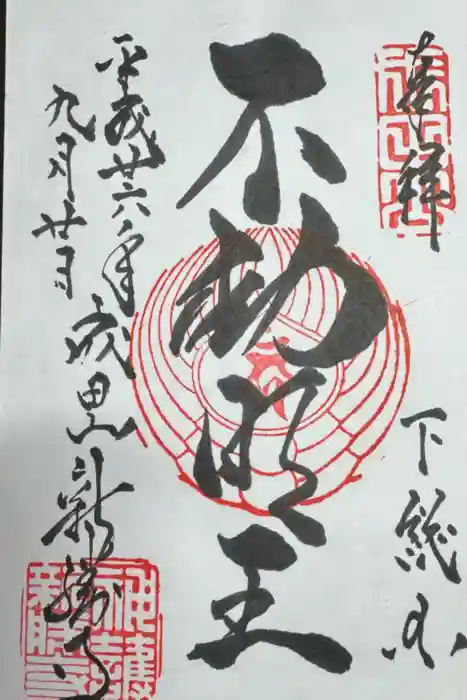 奉拝
下総国
不動明王
平成廿六年
九月廿日
成田山新勝寺